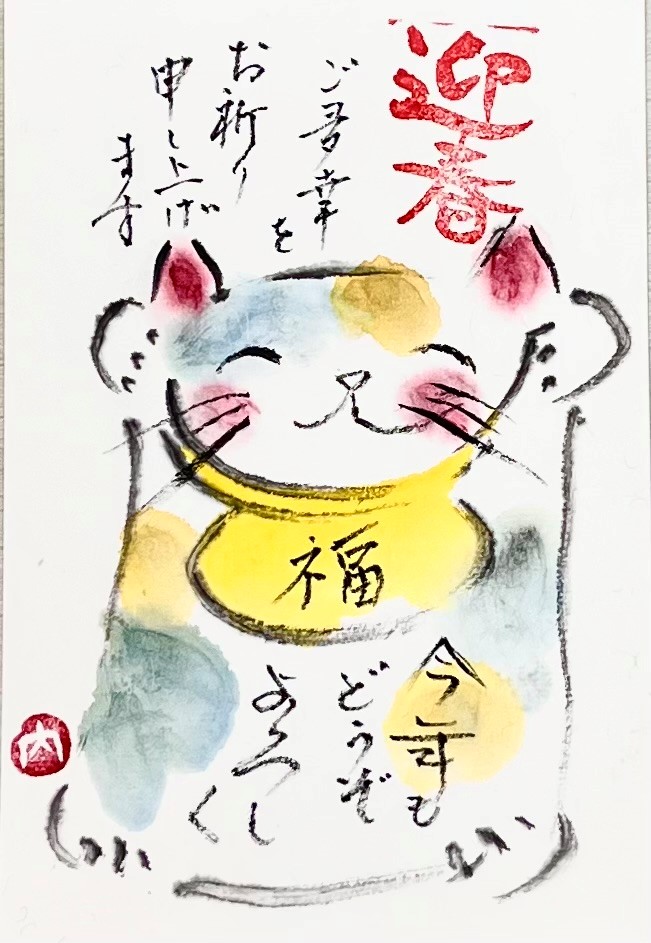 迎春
ご多幸を
お祈り
申し上げ
ます
福
今年も
どうぞ
よろしく
内